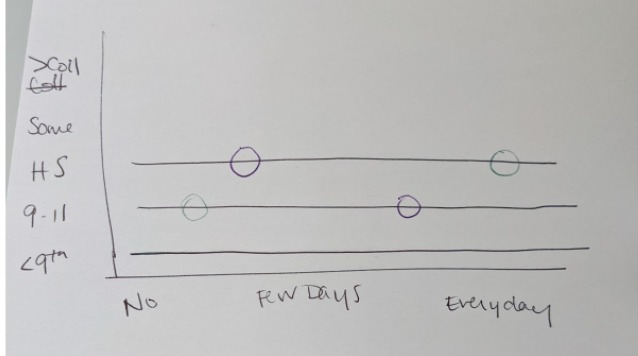 >Coll
Coll
Some
HS
9-11
<9th
No Few Days Everyday